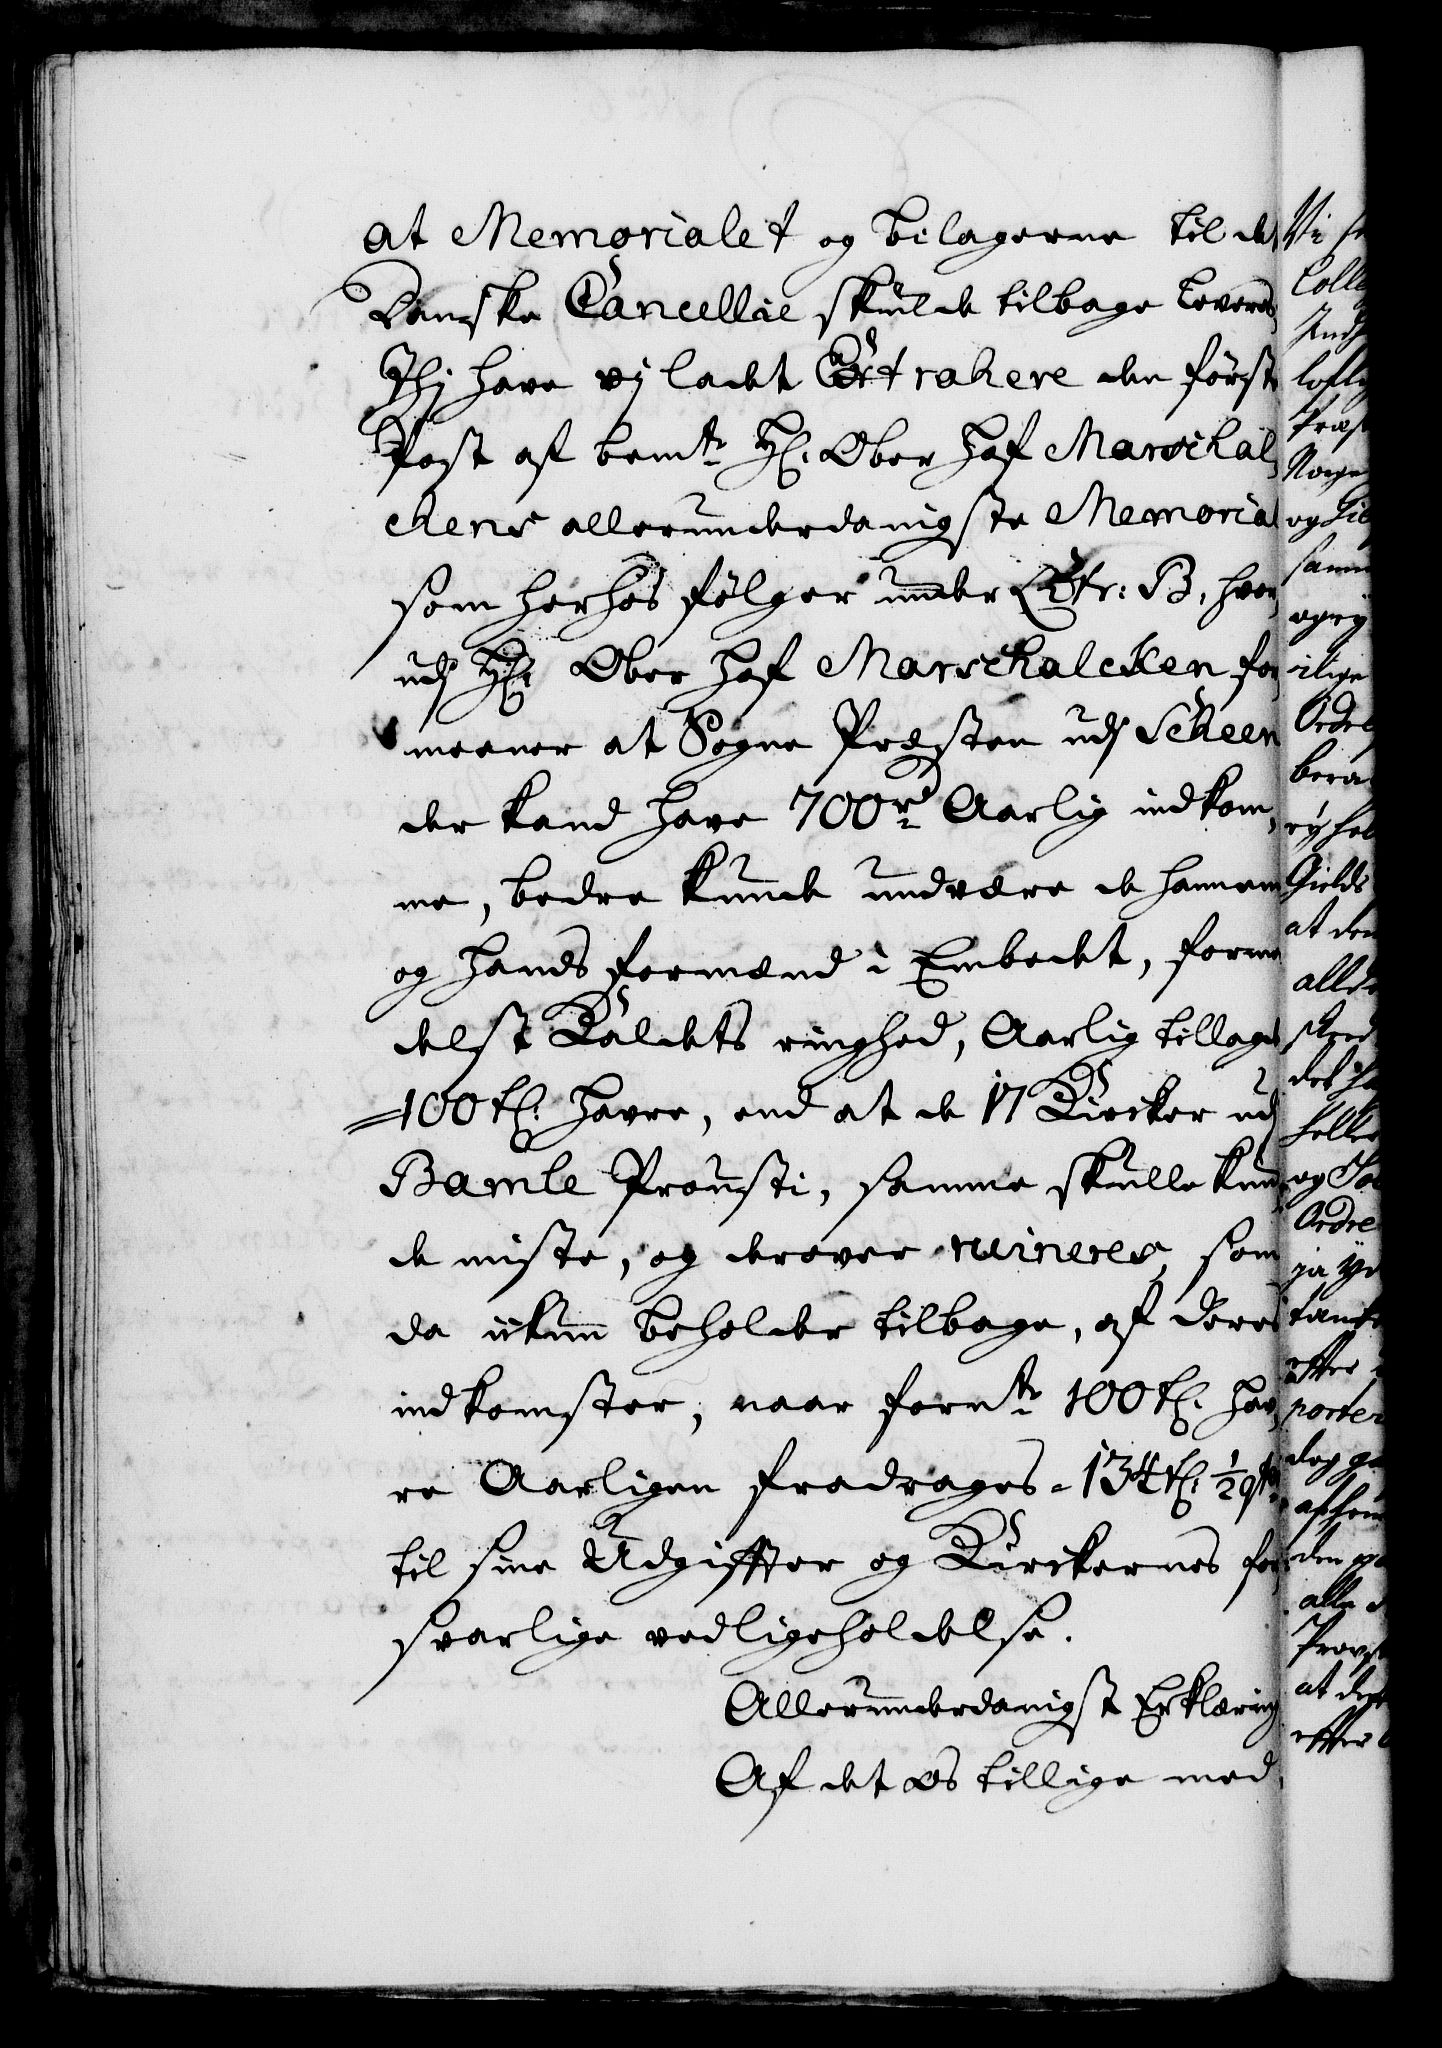 at Memorialet og bilagerne til det
Danske Cancellie skulde tilbage leveres,
Thj have vj ladet Extrahere den første
Post af bemte H: Ober Hof Marschal¬
ckens allerunderdanigste Memorial
som herhos følger under Litr: B, hvor¬
udj H: Ober Hof Marschalcken for¬
meener at Sogne Præsten udj Scheen
der kand have 700 rd Aarlig indkom¬
me, bedre kunde undvære de hannem
og hands formænd i Embedet, forme¬
delst Kaldets ringhed, Aarlig tillagde
100 t: Havre, end at de 17 Kircker udj
Bamle Prousti, samme skulle kun¬
de miste, og derover ruineres, som
da ickun beholder tilbage, af deres
indkomster, naar fornte 100 t: Hav¬
re Aarligen fradrages 134 t: ½
til sine Udgiffter og Kirckernes for¬
svarlige vedligeholdelse.
Allerunderdanigst Erklæring
Af det os tillige med